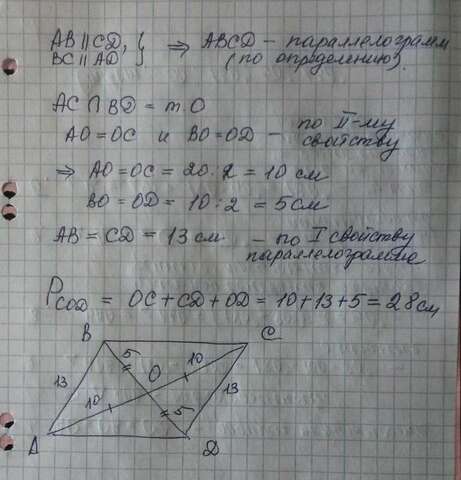 AB || CD, } ⇒ ABCD – параллелограмм
BC || AD } (по определению).
AC ∩ BD = т. О
AO = OC и BO = OD – по II-му свойству
⇒ AO = OC = 20 : 2 = 10 см
BO = OD = 10 : 2 = 5 см
AB = CD = 13 см – по I свойству
параллелограмма
P COD = OC + CD + OD = 10 + 13 + 5 = 28 см
B C
5 10
O
13 10 5 13
A D